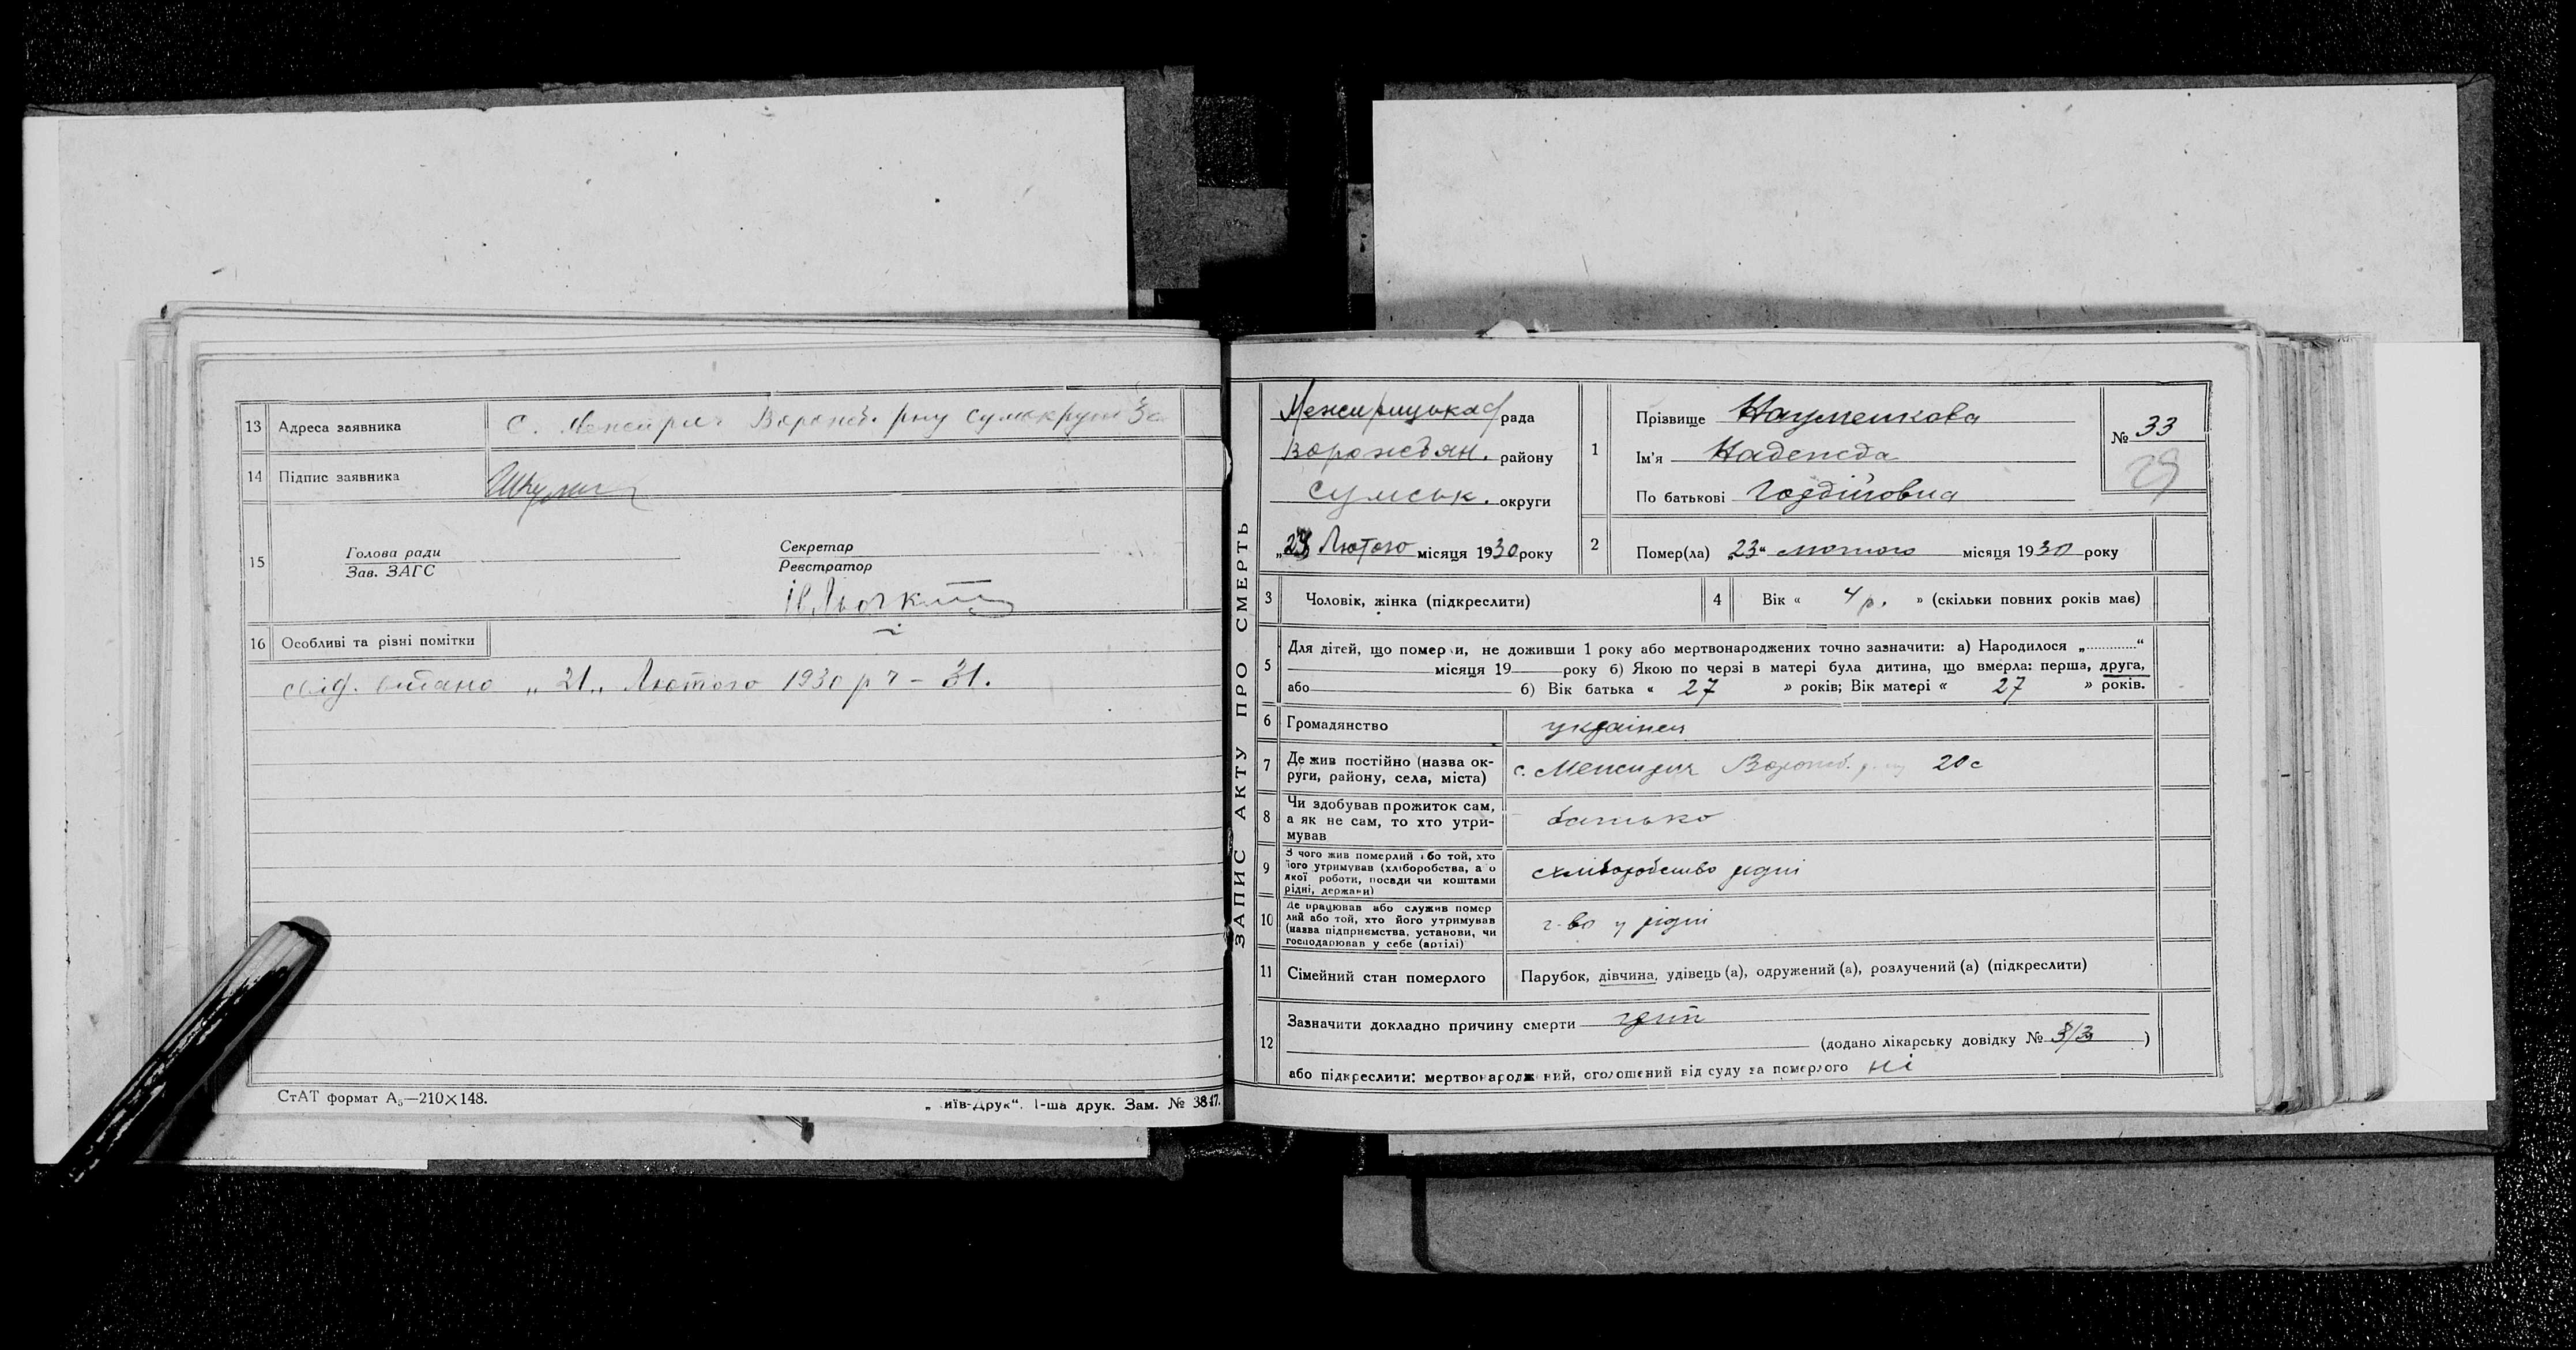 13 Адреса заявника с. Межирич Ворожб. р-ну Сумокруги
14 Підпис заявника
15 Голова ради Секретар
Зав. ЗАГС Реєстратор
16 Особливі та різні помітки
свід. видано „21„ Лютого 1930 р ч - 31.
СтАТ формат А₅—210×148.
„ иїв-Друк“. 1-ша друк. Зам. № 3847.
ЗАПИС АКТУ ПРО СМЕРТЬ
Межирицька рада
Ворожбян. району
Сумськ. округи
Лютого місяця 1930 року
1 Прізвище Науменкова
Ім'я Надежда
По батькові Гордіїовна
№ 33
29
2 Помер(ла) „23“ лютого місяця 1930 року
3 Чоловік, жінка (підкреслити)
4 Вік « 4 р. » (скільки повних років має)
5 Для дітей, що помер и, не доживши 1 року або мертвонароджених точно зазначити: а) Народилося „............“
місяця 19 року б) Якою по черзі в матері була дитина, що вмерла: перша, друга,
або б) Вік батька « 27 » років; Вік матері « 27 » років.
6 Громадянство українец
7 Де жив постійно (назва ок-
руги, району, села, міста) с. Межирич Ворожб. р-ну
8 Чи здобував прожиток сам,
а як не сам, то хто утри-
мував батько
9 З чого жив померлий або той, хто
його утримував (хліборобства, а о
якої роботи, посади чи коштами
рідні, держави) хліборобство рідні
10 Де працював або служив помер
лий або той, хто його утримував
(назва підприємства, установи, чи
господарював у себе (артілі) г-во у рідні
11 Сімейний стан померлого Парубок, дівчина, удівець (а), одружений (а), розлучений (а) (підкреслити)
12 Зазначити докладно причину смерти грип
(додано лікарську довідку № 3/3 )
або підкреслити: мертвонароджений, оголошений від суду за померлого ні